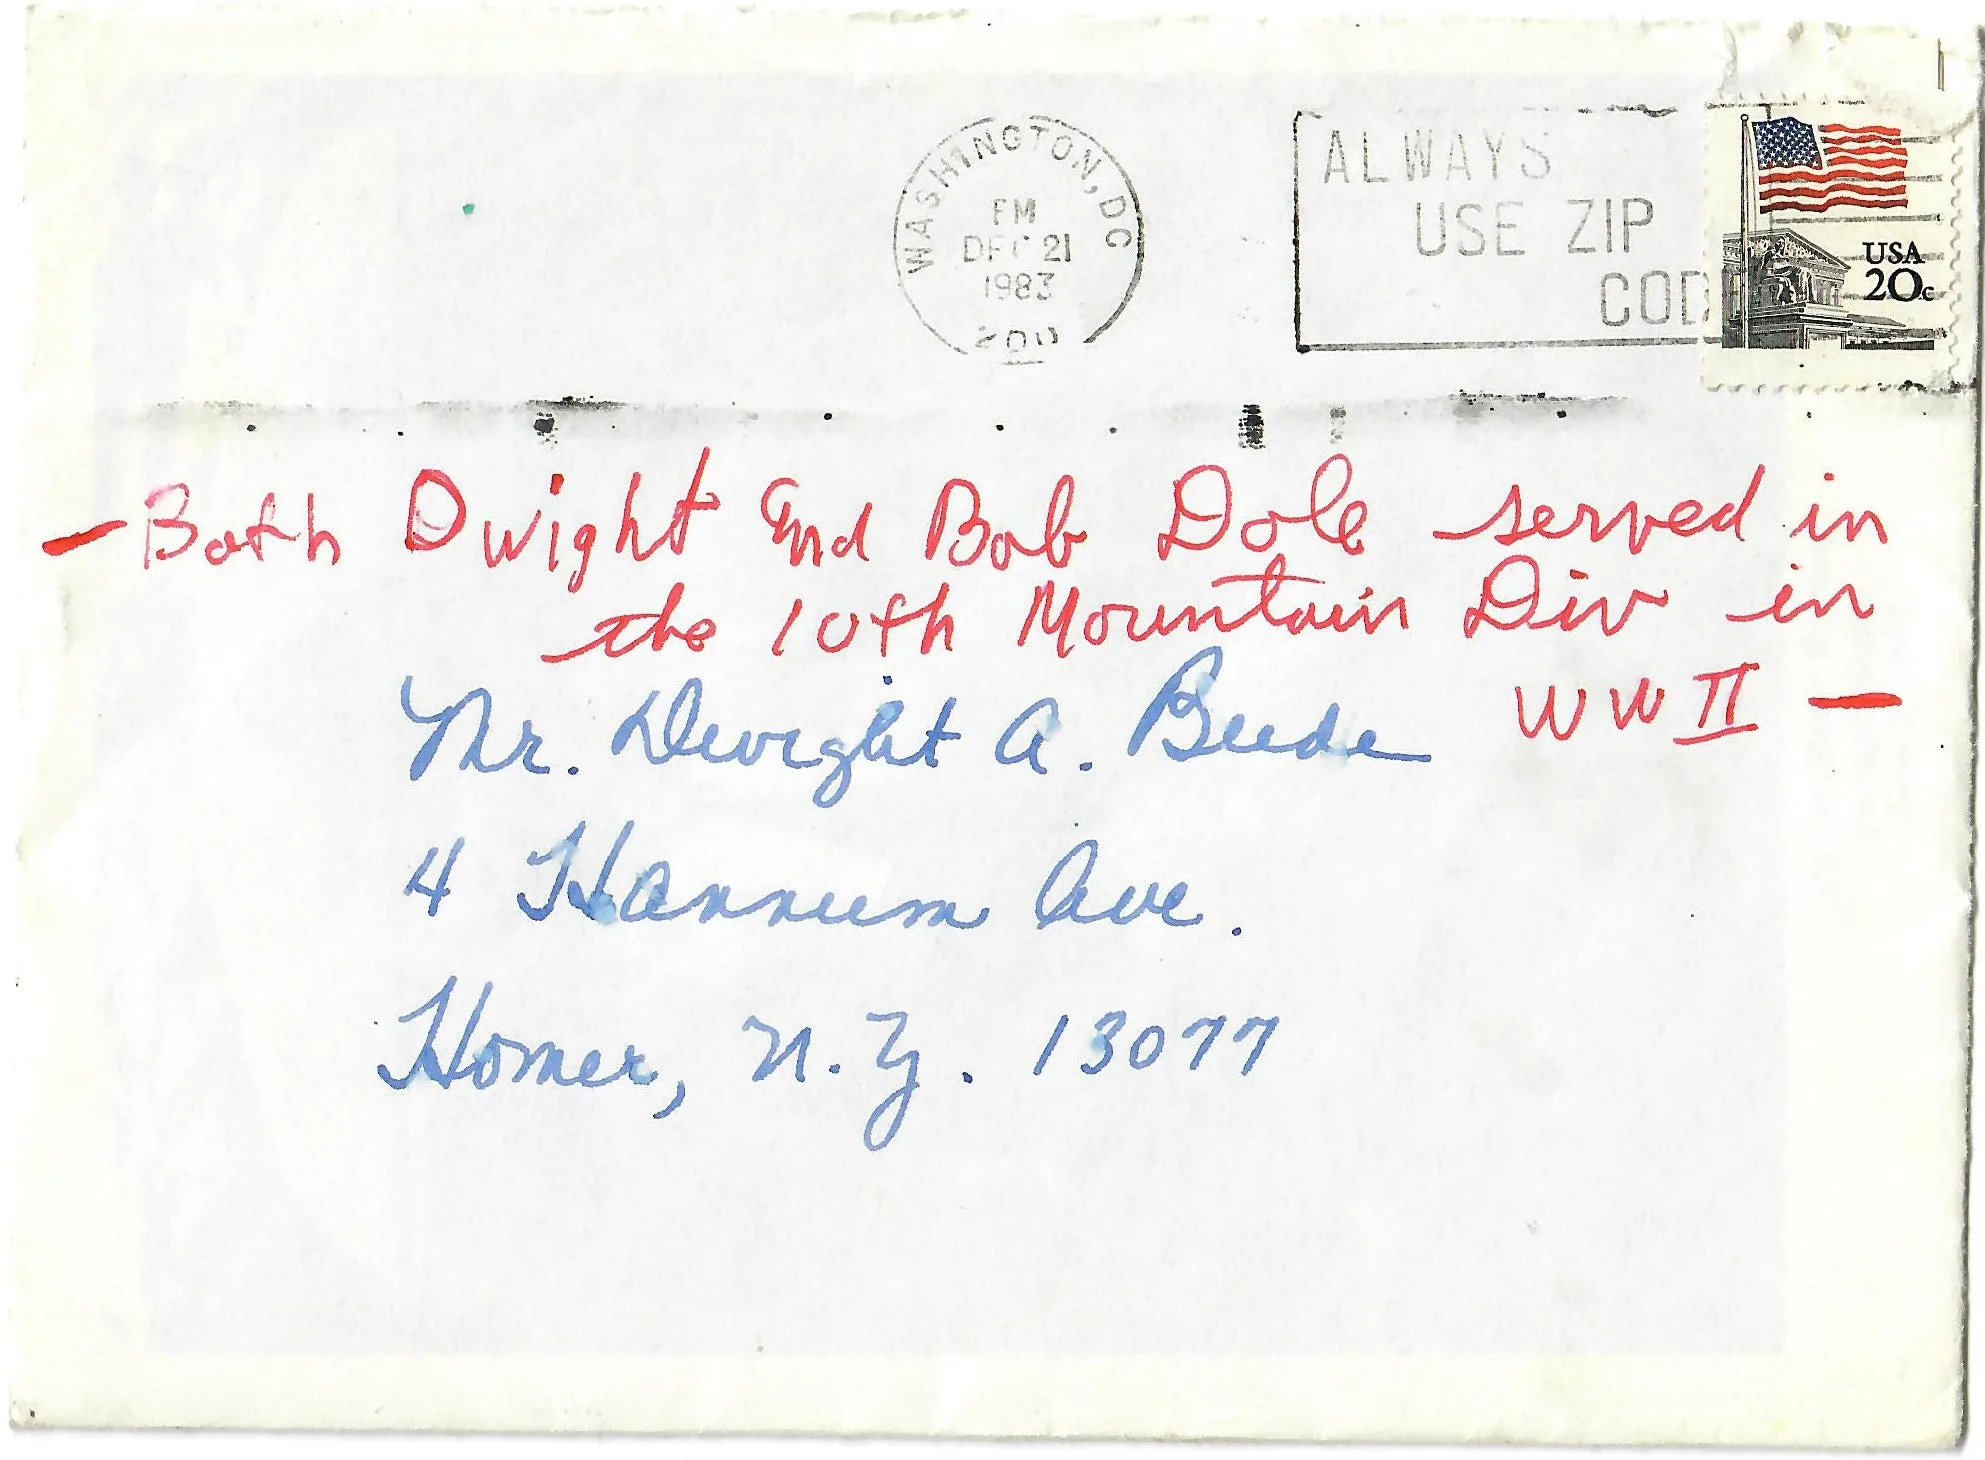 WASHINGTON, DC
PM
DEC 21
1983
200
ALWAYS
USE ZIP
CODE
USA
20c
— Both Dwight and Bob Dole served in
the 10th Mountain Div in
WW II —
Mr. Dwight A. Beede
4 Hannum Ave.
Homer, N.Y. 13077